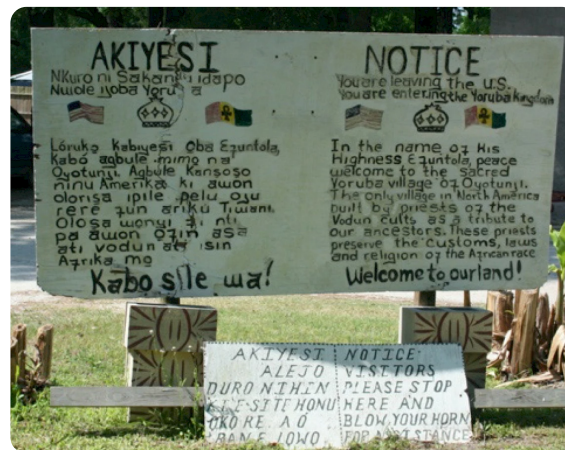 AKIYESI
Nkuro ni Sakani idapo
Nwole ijoba Yoruba
Lóruko Kabiyesi Oba Ezuntola,
Kabó agbule mimo na
Oyotunji. Agbule Kansoso
ninu Amerika ki awon
olorisa ipile pelu ozu
rere zun ariku Tiwani.
Olosa wonyi zi nti
pa awon ozin asa
ati vodun ati isin
Azrika mo
Kabo sile wa!
NOTICE
You are leaving the U.S.
You are entering the Yoruba Kingdom
In the name of His
Highness Ezuntola, peace
welcome to the sacred
Yoruba village of Oyotunji.
The only village in North America
built by priests of the
Vodun cults as a tribute to
our ancestors. These priests
preserve the customs, laws
and religion of the African race
Welcome to our land!
AKIYESI
ALEJO
DURO NIHIN
HONU
OKO RE AO
LOWO
NOTICE:
VISITORS
PLEASE STOP
HERE AND
BLOW YOUR HORN
FOR ASSISTANCE